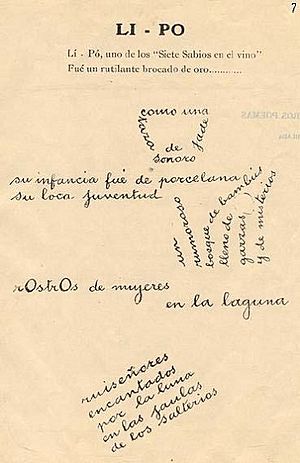 7
LI - PO
Lí - Pó, uno de los "Siete Sabios en el vino"
Fué un rutilante brocado de oro............
como una
taza
de
sonoro
jade
su infancia fué de porcelana
su loca juventud
un
rumoroso
bosque de bambús
lleno de
garzas
y de misterios
rOstrOs de mujeres
en la laguna
ruiseñores
encantados
por la luna
en las jaulas
de los salterios